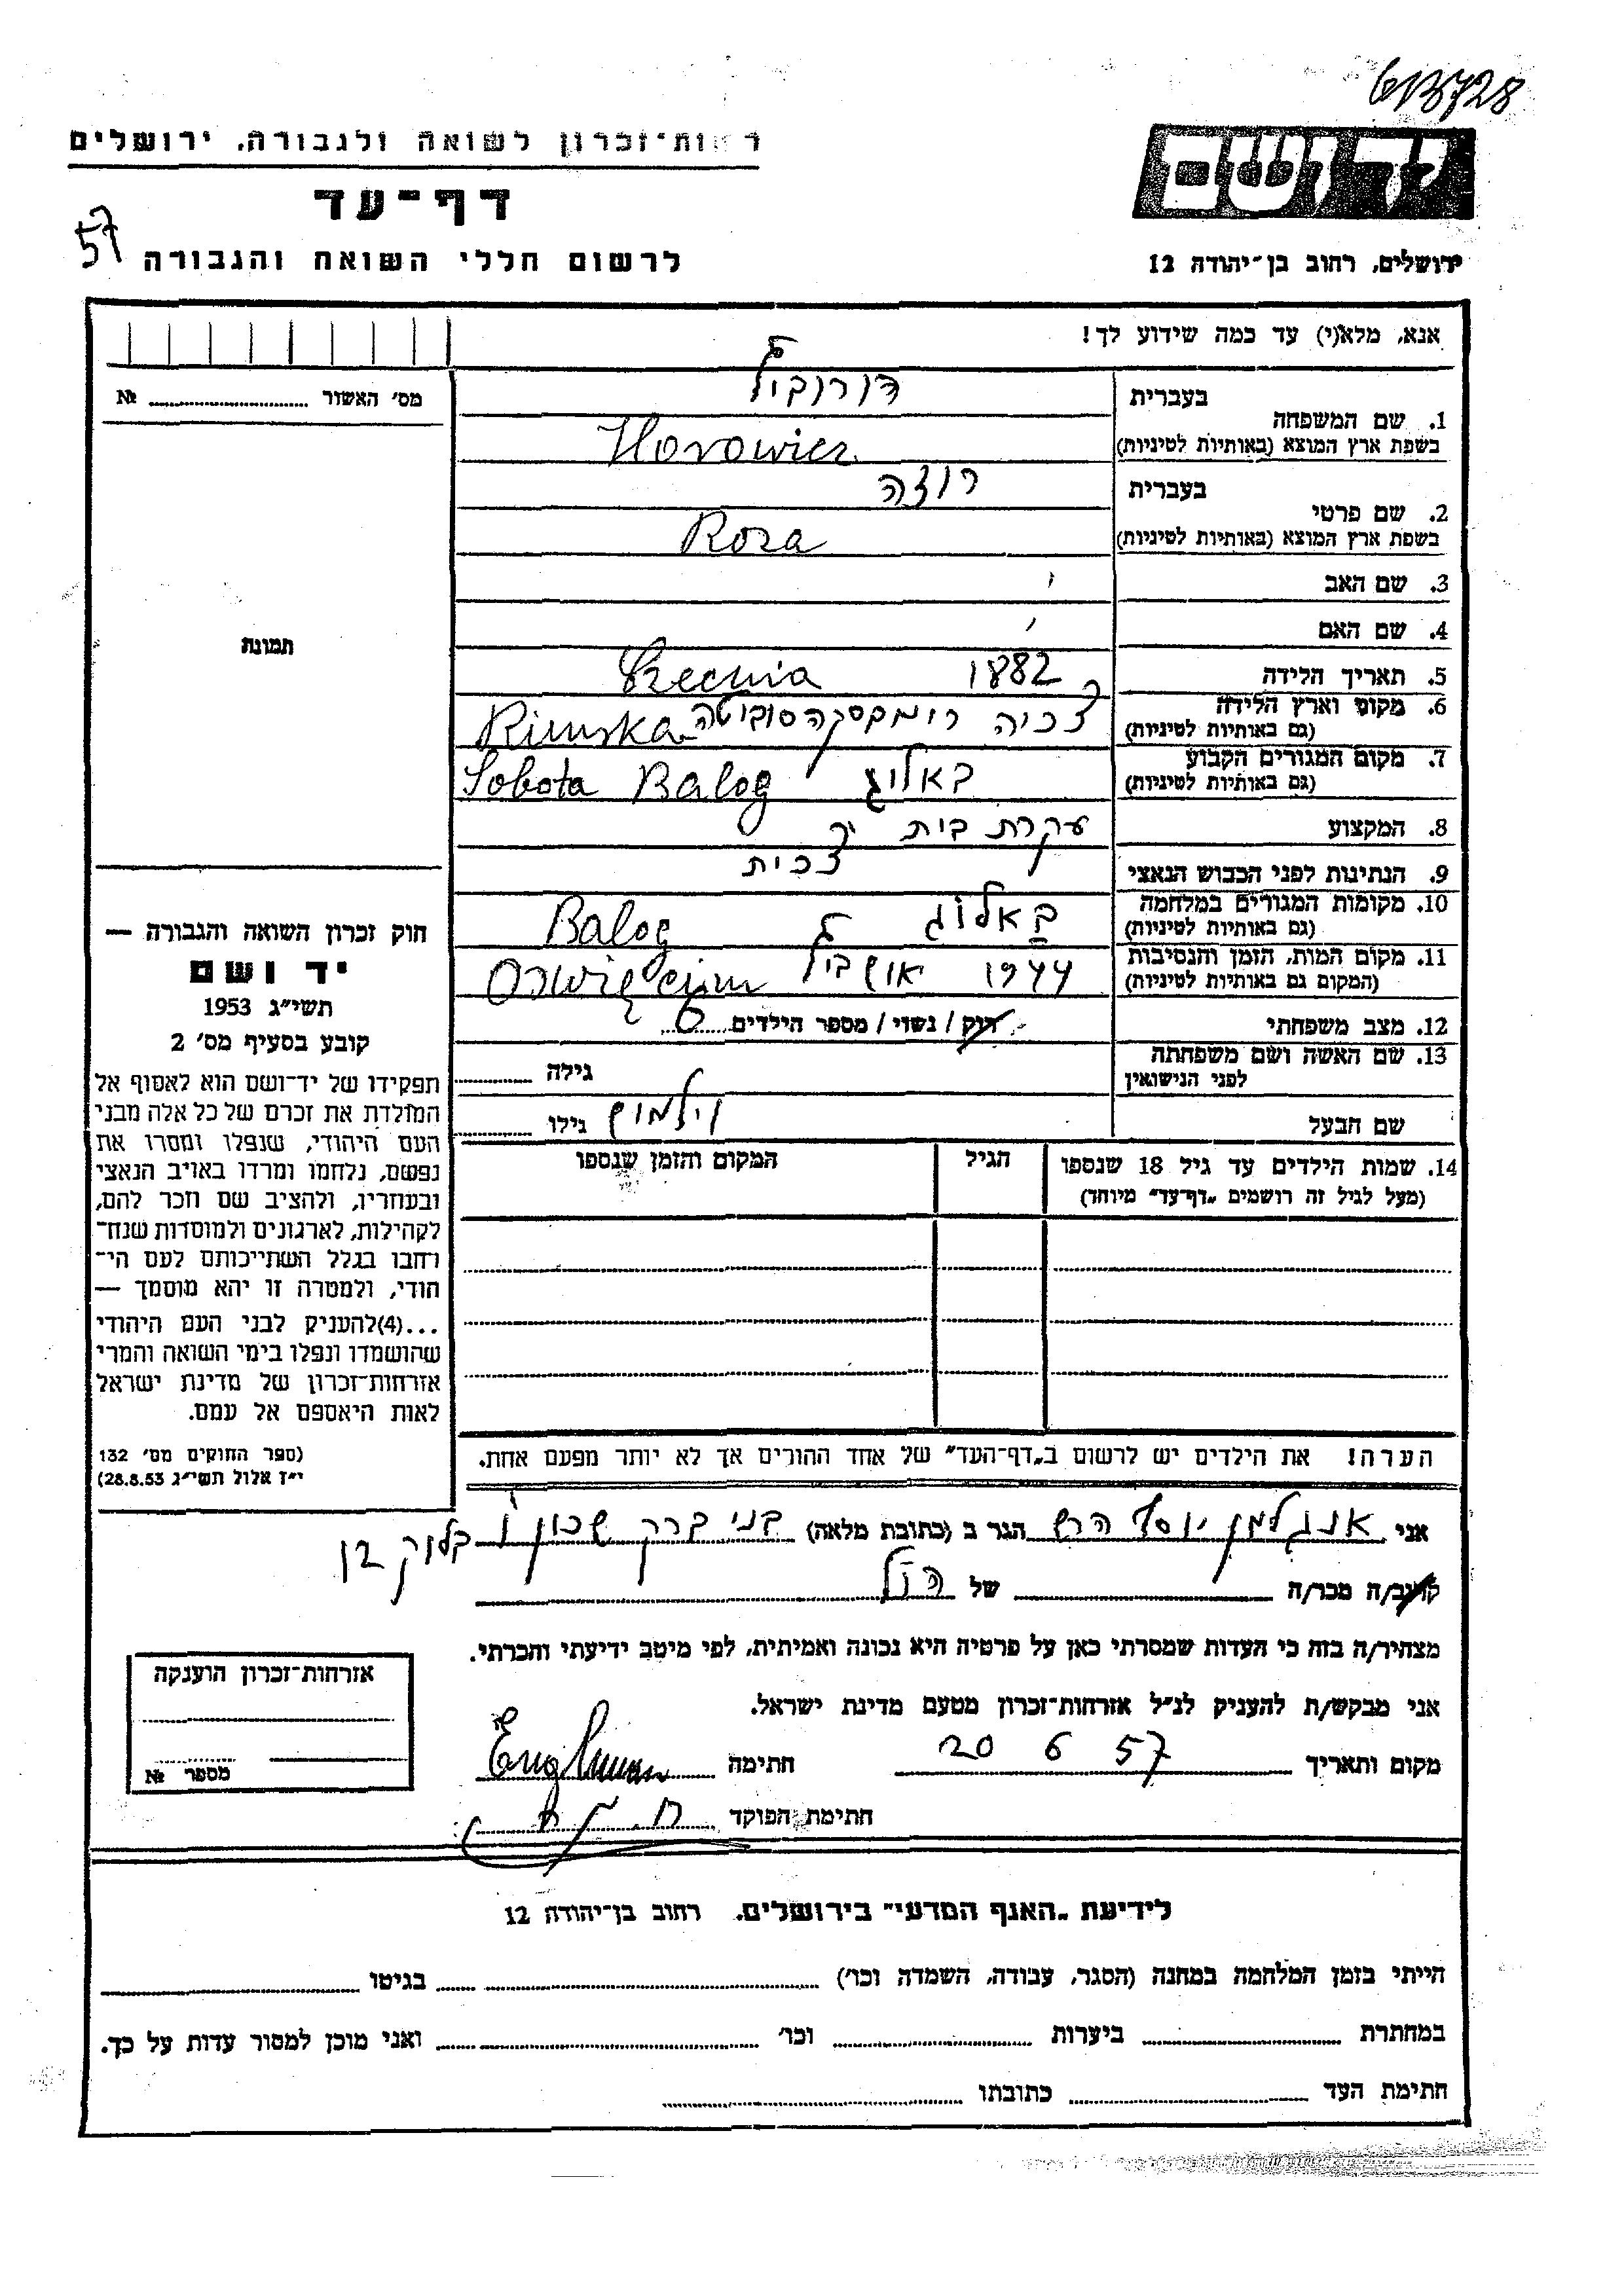 רשות־זכרון לשואה ולגבורה. ירושלים
דף־עד
57
לרשום חללי השואה והגבורה
ירושלים, רחוב בן־יהודה 12
אנא, מלא(י) עד כמה שידוע לך!
מס׳ האשור № 
בעברית
הורוביץ
1. שם המשפחה
בשפת ארץ המוצא (באותיות לטיניות)
Horowicz
בעברית
רוזה
2. שם פרטי
בשפת ארץ המוצא (באותיות לטיניות)
Roza
3. שם האב
4. שם האם
תמונה
5. תאריך הלידה
1882
6. מקום וארץ הלידה
(גם באותיות לטיניות)
Rimska
7. מקום המגורים הקבוע
(גם באותיות לטיניות)
באלוג Sobota Balog
8. המקצוע
עקרת בית
9. הנתינות לפני הכבוש הנאצי
צ׳כית
10. מקומות המגורים במלחמה
(גם באותיות לטיניות)
באלוג Balog
11. מקום המות, הזמן והנסיבות
(המקום גם באותיות לטיניות)
1944 אושביץ
12. מצב משפחתי
רוק / נשוי / מספר הילדים
13. שם האשה ושם משפחתה
לפני הנישואין
גילה
שם הבעל
וילמוש גילו
14. שמות הילדים עד גיל 18 שנספו
(מעל לגיל זה רושמים „דף־עד״ מיוחד)
הגיל
המקום והזמן שנספו
חוק זכרון השואה והגבורה —
יד ושם
תשי״ג 1953
קובע בסעיף מס׳ 2
תפקידו של יד־ושם הוא לאסוף אל
המולדת את זכרם של כל אלה מבני
העם היהודי, שנפלו ומסרו את
נפשם, נלחמו ומרדו באויב הנאצי
ובעוזריו, ולהציב שם וזכר להם,
לקהילות, לארגונים ולמוסדות שנח־
רבו בגלל השתייכותם לעם הי־
הודי, ולמטרה זו יהא מוסמך —
...(4) להעניק לבני העם היהודי
שהושמדו ונפלו בימי השואה והמרי
אזרחות־זכרון של מדינת ישראל
לאות היאספם אל עמם.
(ספר החוקים מס׳ 132
י״ז אלול תשי״ג 28.8.53)
הערה! את הילדים יש לרשום ב„דף־העד״ של אחד ההורים אך לא יותר מפעם אחת.
אני אנגלמן יוסף הרש הגר ב (כתובת מלאה) בני ברק שכון ו
קרוב/ה מכר/ה של הנ״ל
מצהיר/ה בזה כי העדות שמסרתי כאן על פרטיה היא נכונה ואמיתית, לפי מיטב ידיעתי והכרתי.
אני מבקש/ת להעניק לנ״ל אזרחות־זכרון מטעם מדינת ישראל.
מקום ותאריך 20 6 57 חתימה
חתימת הפוקד
אזרחות־זכרון הוענקה
מספר №
לידיעת „האנף המדעי״ בירושלים. רחוב בן־יהודה 12
הייתי בזמן המלחמה במחנה (הסגר, עבודה, השמדה וכו׳) בגיטו
במחתרת ביערות וכו׳ ואני מוכן למסור עדות על כך.
חתימת העד כתובתו